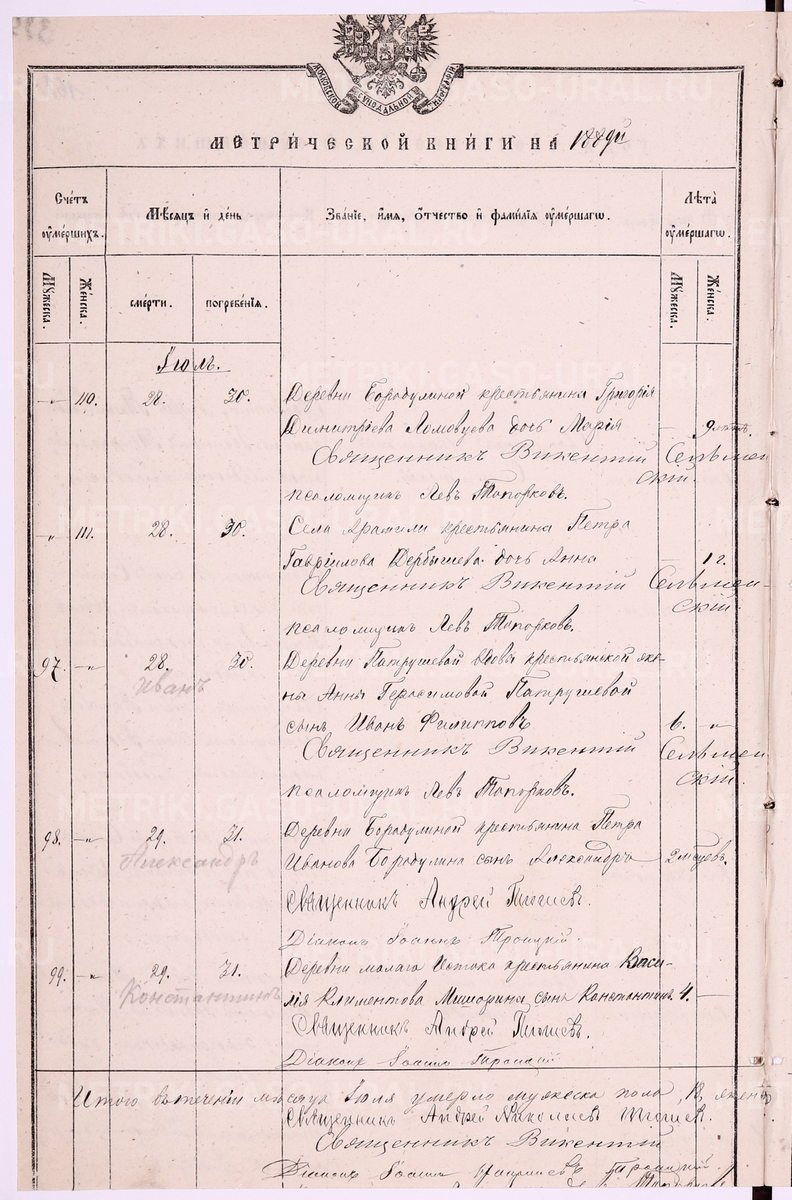 МОСКОВСКОЙ СѴНОДАЛЬНОЙ ТИПОГРАФІИ
МЕТРИЧЕСКОЙ КНИГИ НА 1889й
Счетъ ѹмершихъ.
Мѣсяцъ и день
Званіе, имя, отчество и фамилія ѹмершагѡ.
Лѣта ѹмершагѡ.
Мужеска.
Женска.
смерти.
погребенія.
Мужеска.
Женска.
Іюль.
„ 110. 28. 30. Деревни Бородулиной крестьянина Григорія
Димитріева Ломовцева дочь Марія — 9 лѣтъ.
Священникъ Викентій Сельмен
скій.
псаломщикъ Левъ Топорковъ.
„ 111. 28. 30. Села Арамили крестьянина Петра
Гавріилова Дербышева дочь Анна — 1 г.
Священникъ Викентій Сельмен-
скій.
псаломщикъ Левъ Топорковъ.
97. —„ 28. 30. Деревни Патрушевой вдовы крестьянской же-
Иванъ
ны Анны Герасимовой Патрушевой
сынъ Иванъ Филипповъ 6. „
Священникъ Викентій Сельмен
скій.
псаломщикъ Левъ Топорковъ.
98. —„ 29. 31. Деревни Бородулиной крестьянина Петра
Александръ
Иванова Бородулина сынъ Александръ 2 мѣсяцевъ.
Священникъ Андрей
Діаконъ Іоаннъ Троицкій.
99. —„ 29. 31. Деревни малаго Истока крестьянина Васи-
Константинъ
лія Климентова Мишарина сынъ Константинъ 4. —
Священникъ Андрей
Діаконъ Іоаннъ Троицкій
Итого въ теченіи мѣсяца Іюля умерло мужеска пола 18, женс
Священникъ Андрей Николаевъ
Священникъ Викентій
Діаконъ Іоаннъ Троицкій.
METRIKI.GASO-URAL.RU